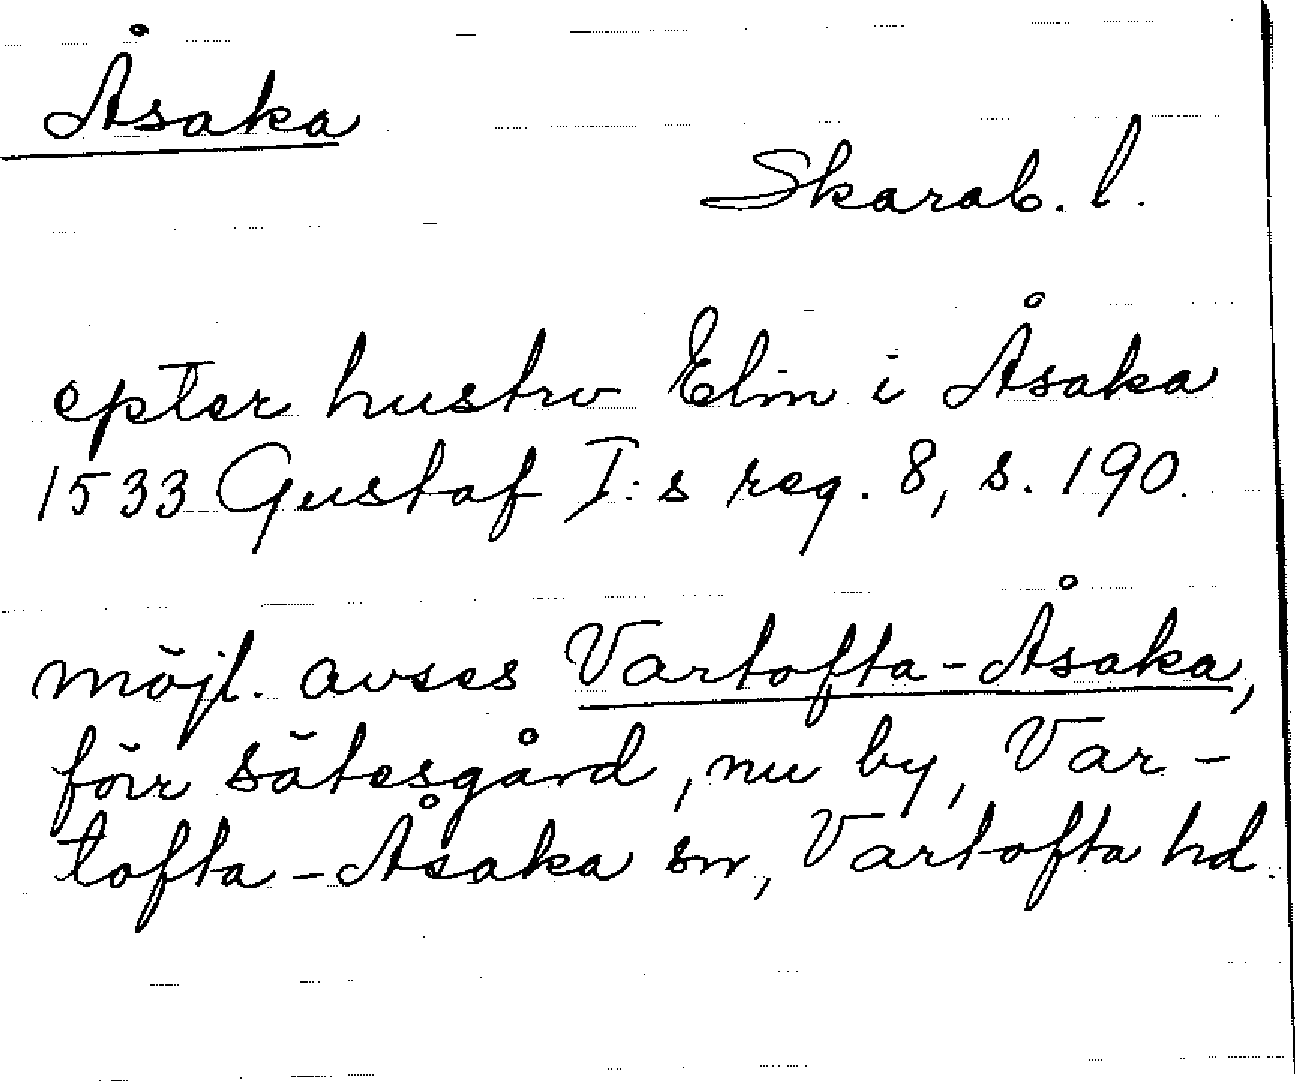 Åsaka
Skarab. l.
epter hustro Elin i Åsaka
1533 Gustaf I:s reg. 8, s. 190.
möjl. avses Vartofta-Åsaka,
förr sätesgård, nu by, Var-
tofta-Åsaka sn, Vartofta hd.